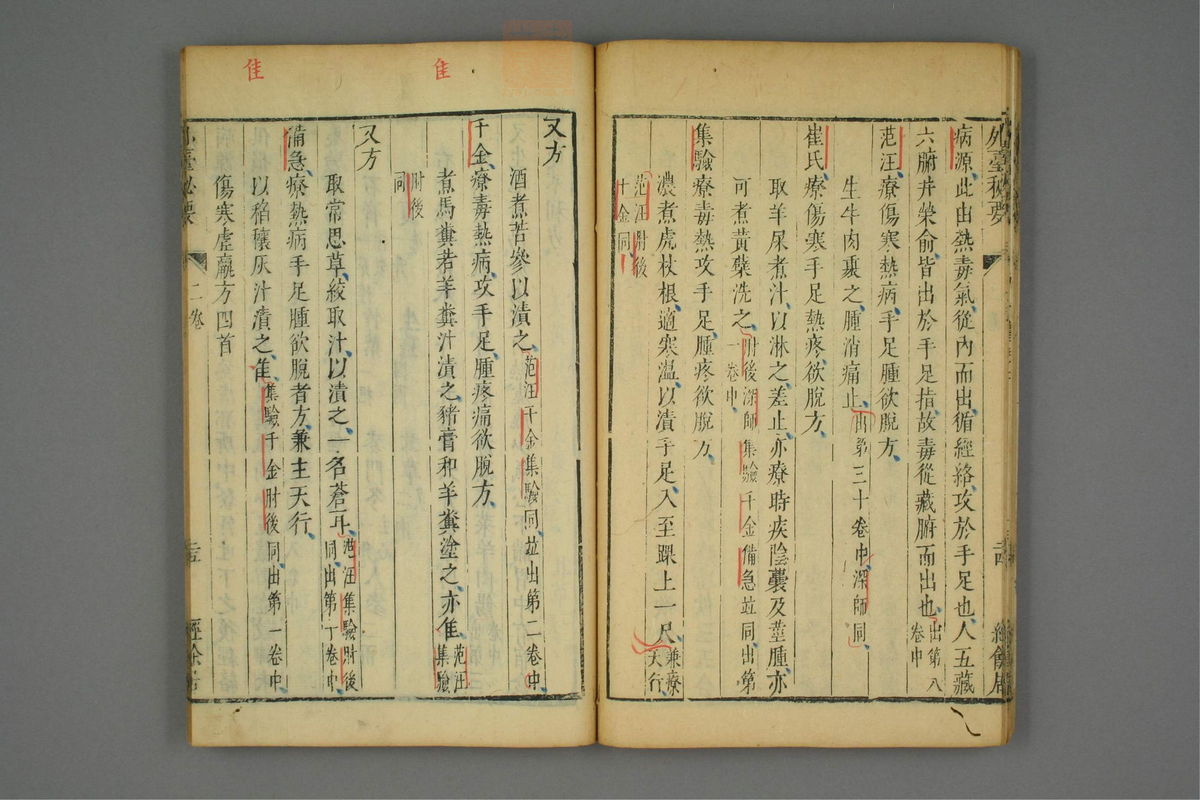 外臺秘要
病源此由熱毒氣從內而出循經絡攻於手足也人五藏
六腑井榮俞皆出於手足指故毒從藏腑而出也出第八卷中
范汪療傷寒熱病手足腫欲脫方
生牛肉裹之腫消痛止出第三十卷中深師同
崔氏療傷寒手足熱疼欲脫方
取羊屎煮汁以淋之差止亦療時疾陰囊及莖腫亦
可煮黃蘗洗之肘後深師集驗千金備急竝同出第一卷中
集驗療毒熱攻手足腫疼欲脫方
濃煮虎杖根適寒温以漬手足入至踝上一尺兼療天行
范汪肘後千金同
又方
酒煮苦參以漬之范汪千金集驗同竝出第二卷中
千金療毒熱病攻手足腫疼痛欲脫方
煮馬糞若羊糞汁漬之豬膏和羊糞塗之亦佳范汪集驗
肘後同
又方
取常思草絞取汁以漬之一名蒼耳范汪集驗肘後同出第丁卷中
備急療熱病手足腫欲脫者方兼主天行
以稻穰灰汁漬之佳集驗千金肘後同出第一卷中
傷寒虛羸方四首
外臺秘要 二卷 二五 經餘居
佳
佳